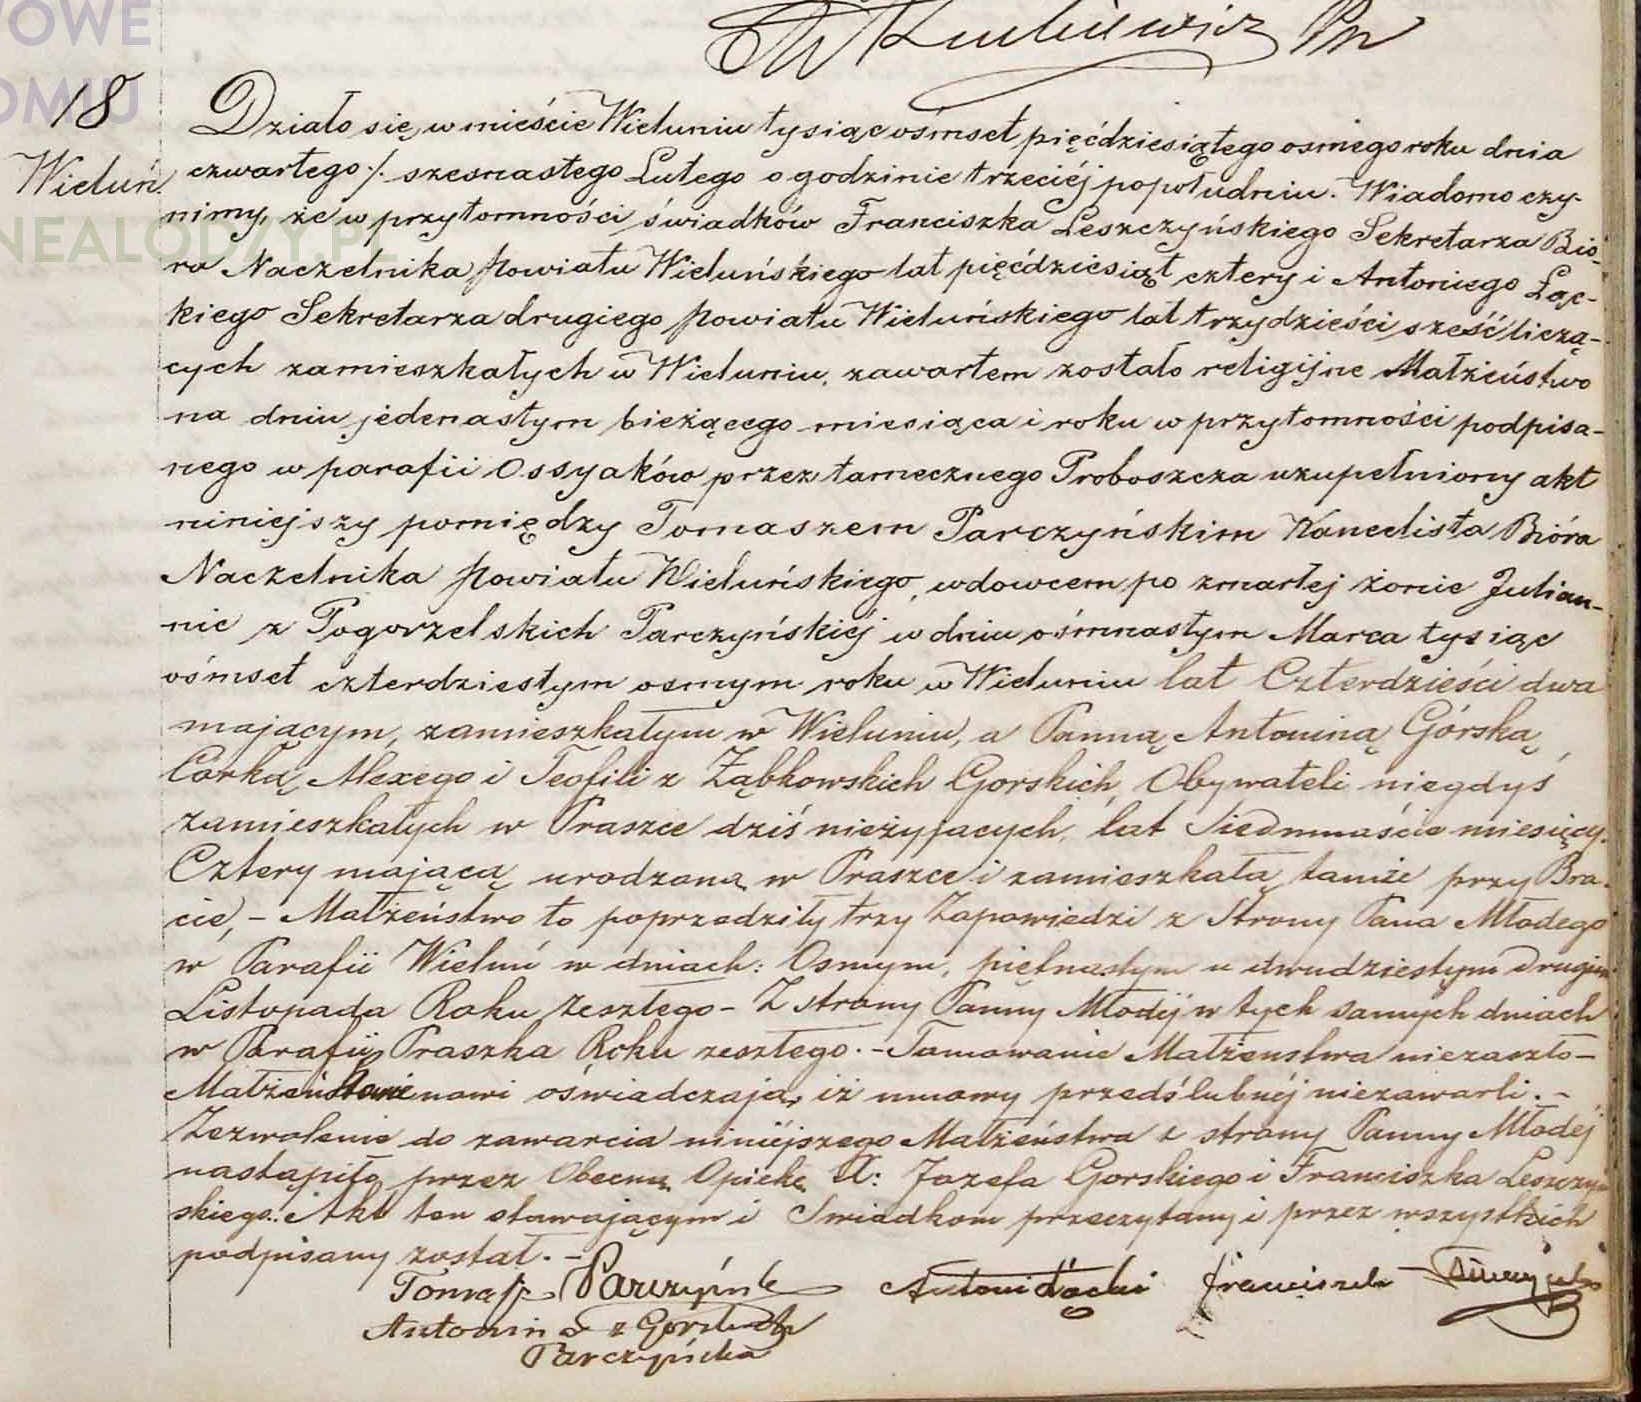 18
Wieluń.
Działo się w mieście Wieluniu tysiąc ośmset pięćdziesiątego osmego roku dnia
czwartego /. szesnastego Lutego o godzinie trzeciéj popołudniu. Wiadomo czy-
nimy, że w przytomności świadków Franciszka Leszczyńskiego Sekretarza Bió-
ra Naczelnika Powiatu Wieluńskiego lat pięćdziesiąt cztery i Antoniego Łąc-
kiego Sekretarza drugiego Powiatu Wieluńskiego lat trzydzieści sześć liczą-
cych zamieszkałych w Wieluniu, zawartem zostało religijne Małżeństwo
na dniu jedenastym bieżącego miesiąca i roku w przytomności podpisa-
nego w parafii Ossyaków przez tamecznego Proboszcza uzupełniony akt
niniejszy pomiędzy Tomaszem Parczyńskim Kancelista Bióra
Naczelnika Powiatu Wieluńskiego, wdowcem po zmarłej żonie Julian-
nie z Pogorzelskich Parczyńskiéj w dniu ośmnastym Marca tysiąc
ośmset czterdziestym osmym roku w Wieluniu lat Czterdzieści dwa
mającym, zamieszkałym w Wieluniu, a Panną Antoniną Górską
Córką Alexego i Teofili z Ząbkowskich Gorskich, Obywateli niegdyś
zamieszkałych w Praszce dziś nieżyjacych, lat Siedmnaście miesięcy
Cztery mającą urodzoną w Praszce i zamieszkałą tamże przy Bra-
cie, – Małżeństwo to poprzedziły trzy Zapowiedzi z Strony Pana Młodego
w Parafii Wieluń w dniach: Osmym, piętnastym a dwudziestym drugim
Listopada Roku zeszłego – Z strony Panny Młodéj w tych samych dniach
w Parafii Praszka Roku zeszłego. – Tamowanie Małżenstwa niezaszło –
Małżeństwie nowi oświadczają, iż umowy przedślubnéj niezawarli. –
Zezwolenie do zawarcia niniéjszego Małżeństwa z strony Panny Młodéj
nastąpiło przez Obecną Opiekę t: Jozefa Gorskiego i Franciszka Leszczyń
skiego. Akt ten stawającym i Swiadkom przeczytany i przez wszystkich
podpisany został. –
Tomasz Parczyński Antoni Łącki Franciszek
Antonina z Gorskich
Parczyńska